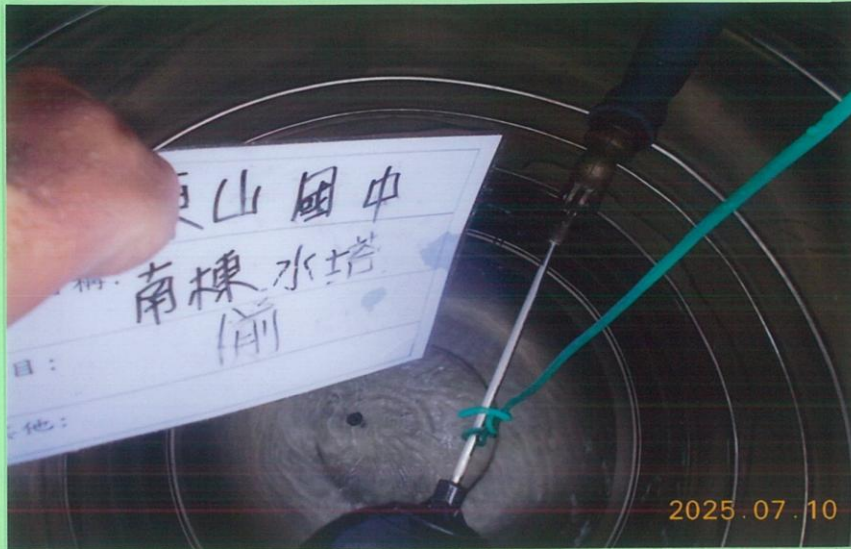 山國中
稱:
南棟水塔
前
目:
他:
2025.07.10